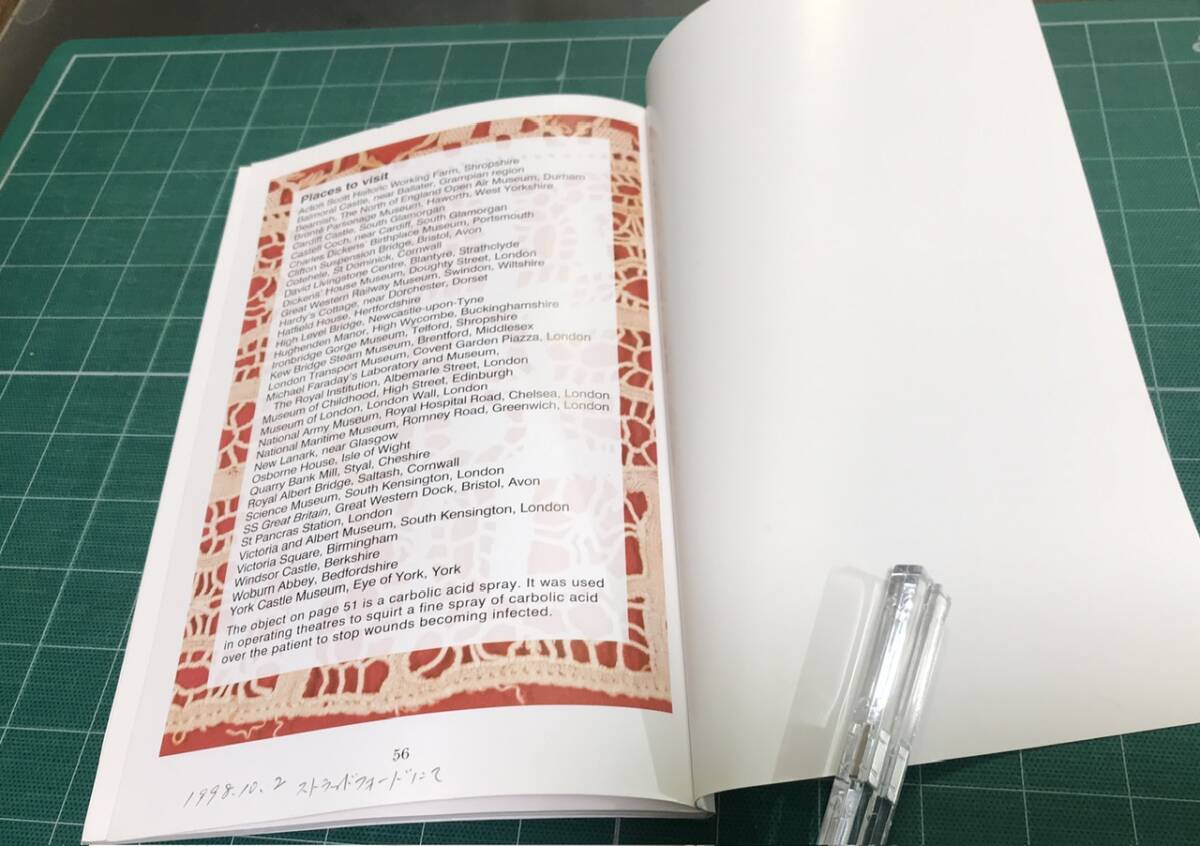 Places to visit
Acton Scott Historic Working Farm, Shropshire
Balmoral Castle, near Ballater, Grampian region
Beamish, The North of England Open Air Museum, Durham
Brontë Parsonage Museum, Haworth, West Yorkshire
Cardiff Castle, South Glamorgan
Castell Coch, near Cardiff, South Glamorgan
Charles Dickens' Birthplace Museum, Portsmouth
Clifton Suspension Bridge, Bristol, Avon
Cotehele, St Dominick, Cornwall
David Livingstone Centre, Blantyre, Strathclyde
Dickens' House Museum, Doughty Street, London
Great Western Railway Museum, Swindon, Wiltshire
Hardy's Cottage, near Dorchester, Dorset
Hatfield House, Hertfordshire
High Level Bridge, Newcastle-upon-Tyne
Hughenden Manor, High Wycombe, Buckinghamshire
Ironbridge Gorge Museum, Telford, Shropshire
Kew Bridge Steam Museum, Brentford, Middlesex
London Transport Museum, Covent Garden Piazza, London
Michael Faraday's Laboratory and Museum,
The Royal Institution, Albemarle Street, London
Museum of Childhood, High Street, Edinburgh
Museum of London, London Wall, London
National Army Museum, Royal Hospital Road, Chelsea, London
National Maritime Museum, Romney Road, Greenwich, London
New Lanark, near Glasgow
Osborne House, Isle of Wight
Quarry Bank Mill, Styal, Cheshire
Royal Albert Bridge, Saltash, Cornwall
Science Museum, South Kensington, London
SS Great Britain, Great Western Dock, Bristol, Avon
St Pancras Station, London
Victoria and Albert Museum, South Kensington, London
Victoria Square, Birmingham
Windsor Castle, Berkshire
Woburn Abbey, Bedfordshire
York Castle Museum, Eye of York, York
The object on page 51 is a carbolic acid spray. It was used
in operating theatres to squirt a fine spray of carbolic acid
over the patient to stop wounds becoming infected.
56
1998.10.2 ストラッドフォードにて